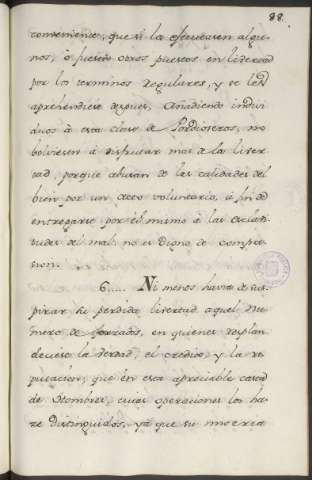 88.
combeniente, que si la efectuasen algu-
nos, ó fuesen otros puestos en livertad
por los terminos regulares, y se les
aprehendiese despues, añadiendo indivi-
duos á esta clase de Pordioseros, no
bolviesen á disfrutar mas de la liver-
tad, porque abusan de las calidades del
bien por un acto voluntario, á fin de
entregarse por él mismo á las
del mal: no es digno de compa-
sion.
6.... Ni menos havia de sus-
pirar su perdida livertad aquel nu-
mero de forzados, en quienes resplan-
deciese la verdad, el credito, y la re-
putacion, que en esta apreciable
de Hombres, cuias operaciones los ha-
ze distinguidos, yá que su miseria